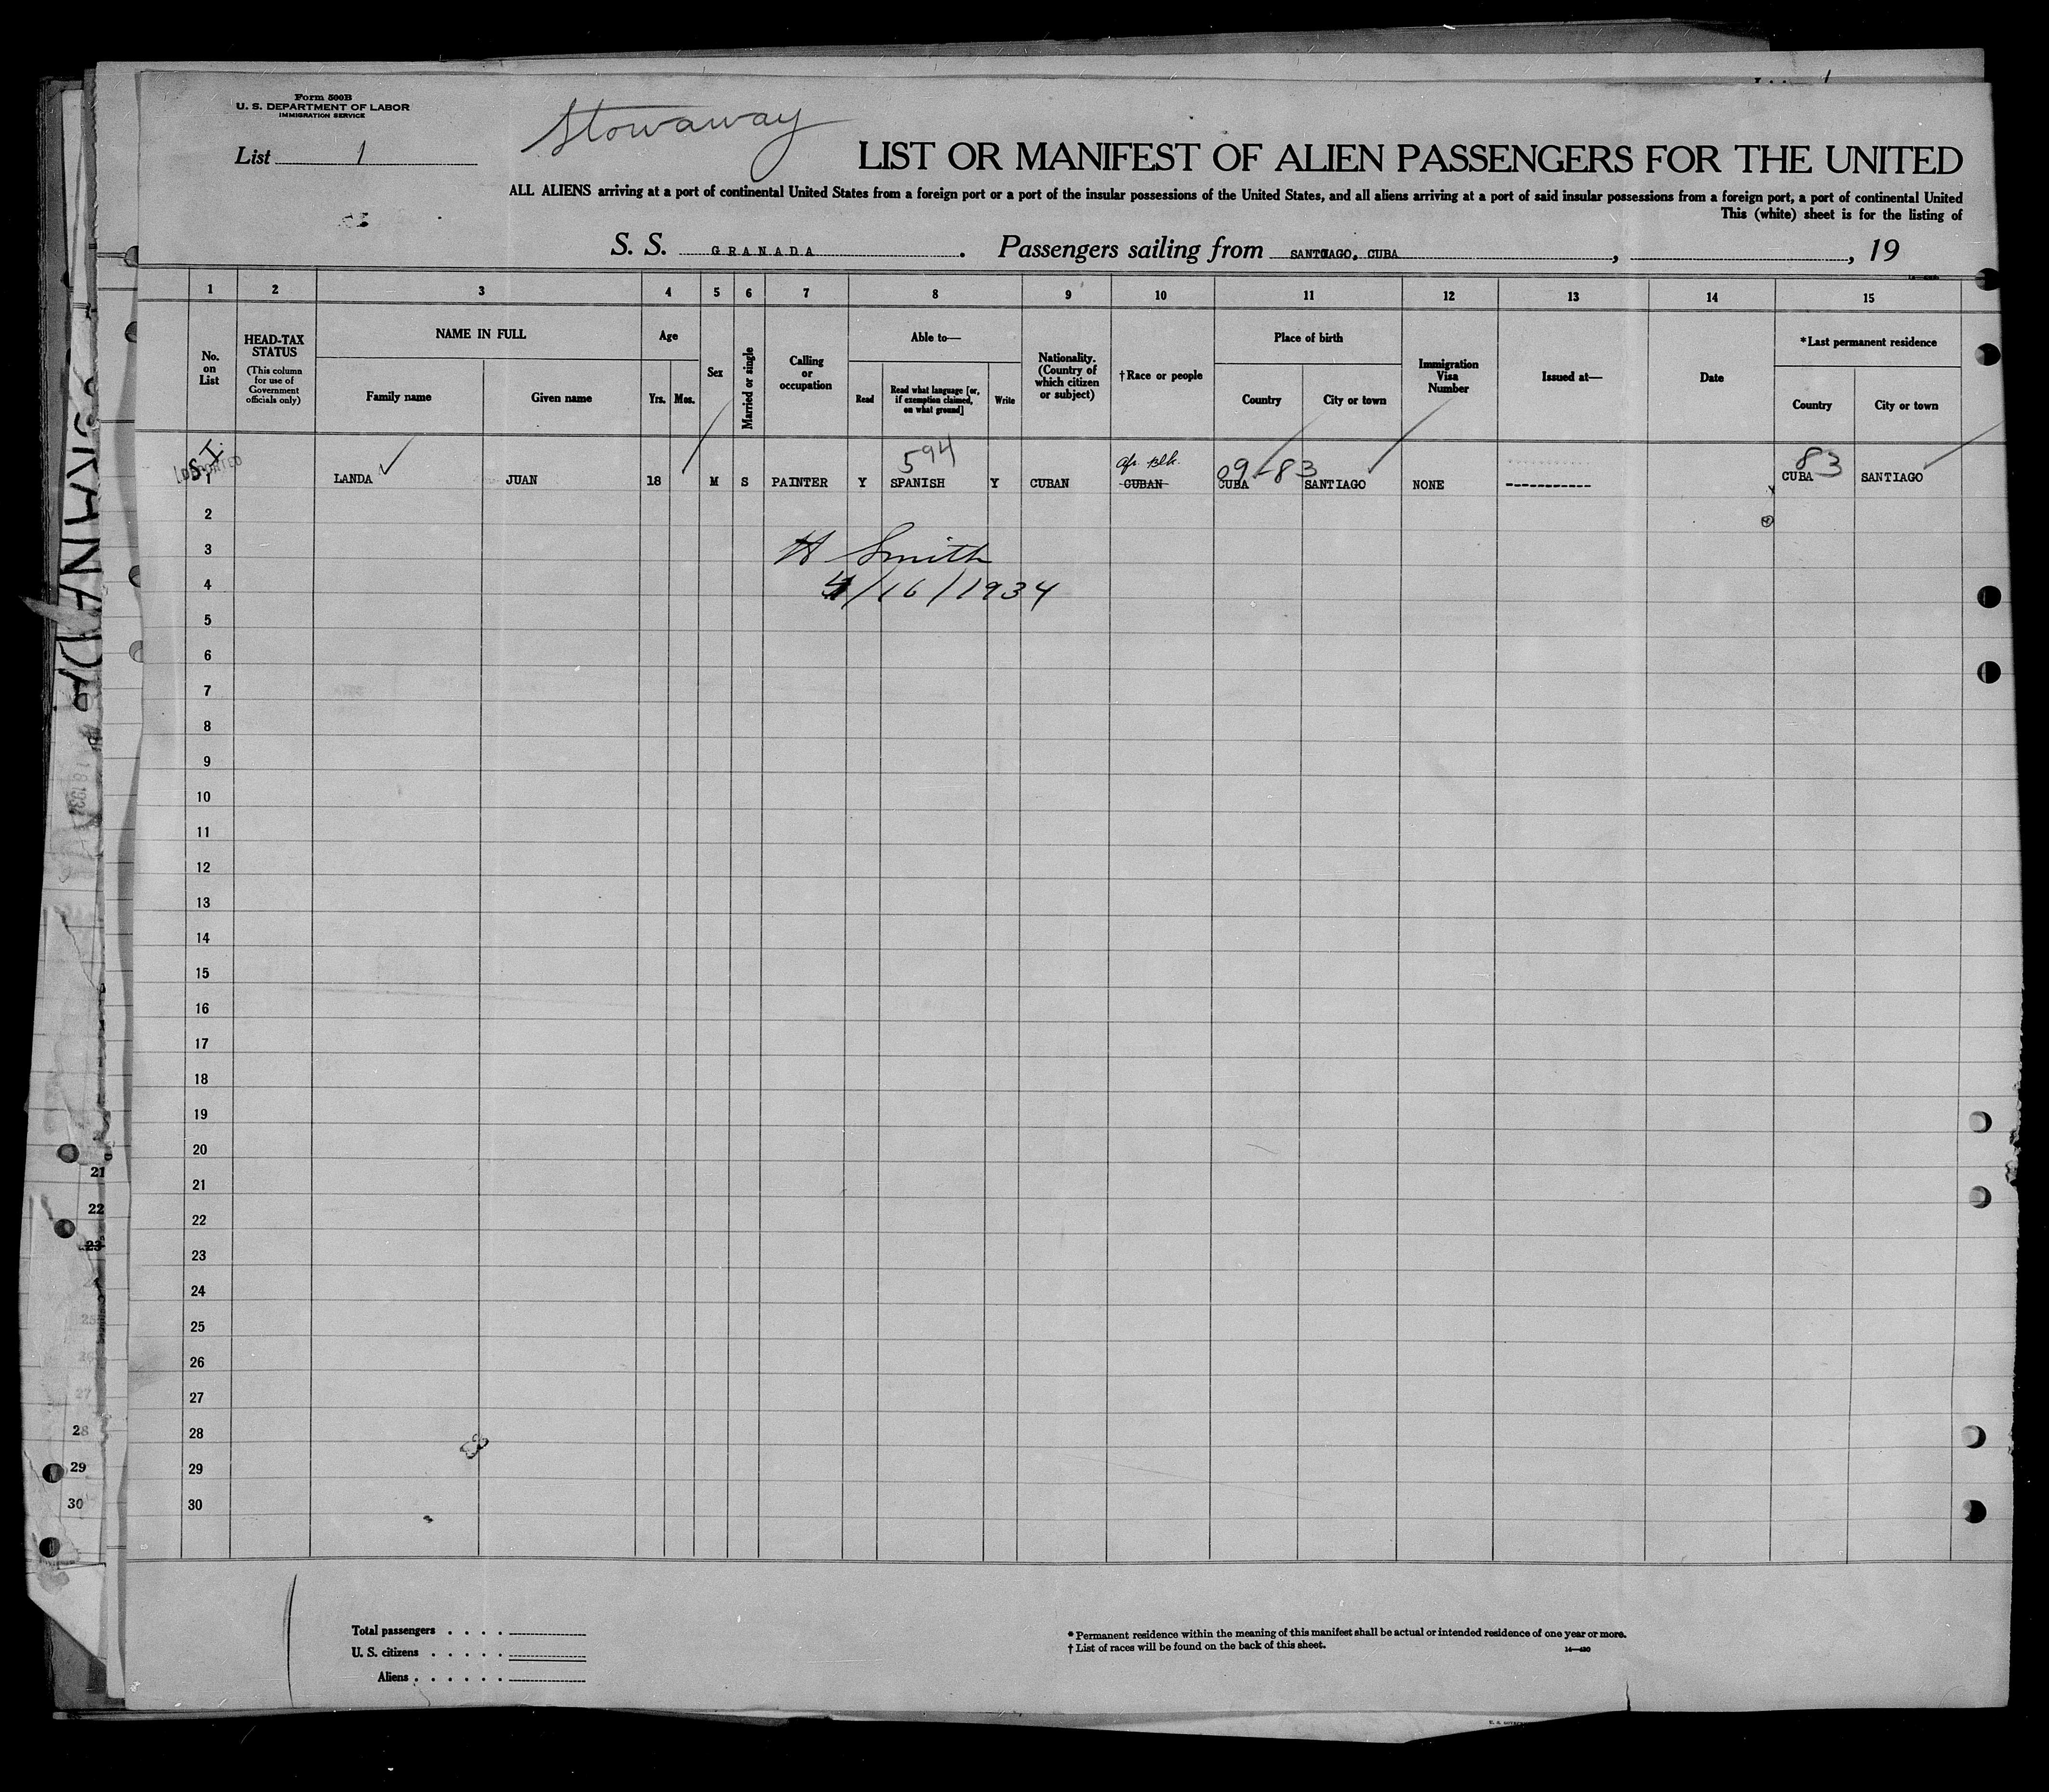 Form 500B
U. S. DEPARTMENT OF LABOR
IMMIGRATION SERVICE
List 1
Stowaway
LIST OR MANIFEST OF ALIEN PASSENGERS FOR THE UNITED
ALL ALIENS arriving at a port of continental United States from a foreign port or a port of the insular possessions of the United States, and all aliens arriving at a port of said insular possessions from a foreign port, a port of continental United
This (white) sheet is for the listing of
S. S. GRANADA. Passengers sailing from SANTIAGO, CUBA, , 19
1 2 3 4 5 6 7 8 9 10 11 12 13 14 15
No. on List
HEAD-TAX STATUS
(This column for use of Government officials only)
NAME IN FULL
Family name
Given name
Age
Yrs.
Mos.
Sex
Married or single
Calling or occupation
Able to—
Read
Read what language [or, if exemption claimed, on what ground]
Write
Nationality. (Country of which citizen or subject)
†Race or people
Place of birth
Country
City or town
Immigration Visa Number
Issued at—
Date
*Last permanent residence
Country
City or town
S.I.
594
Afr. Blk.
09-83
83
1 LANDA JUAN 18 M S PAINTER Y SPANISH Y CUBAN CUBAN CUBA SANTIAGO NONE ----------- CUBA SANTIAGO
2
H Smith
3
4/16/1934
4
5
6
7
8
9
10
11
12
13
14
15
16
17
18
19
20
21
22
23
24
25
26
27
28
29
30
21
22
23
25
26
27
28
29
30
Total passengers . . . .
U. S. citizens . . . . .
Aliens . . . . . .
* Permanent residence within the meaning of this manifest shall be actual or intended residence of one year or more.
† List of races will be found on the back of this sheet.
14—430